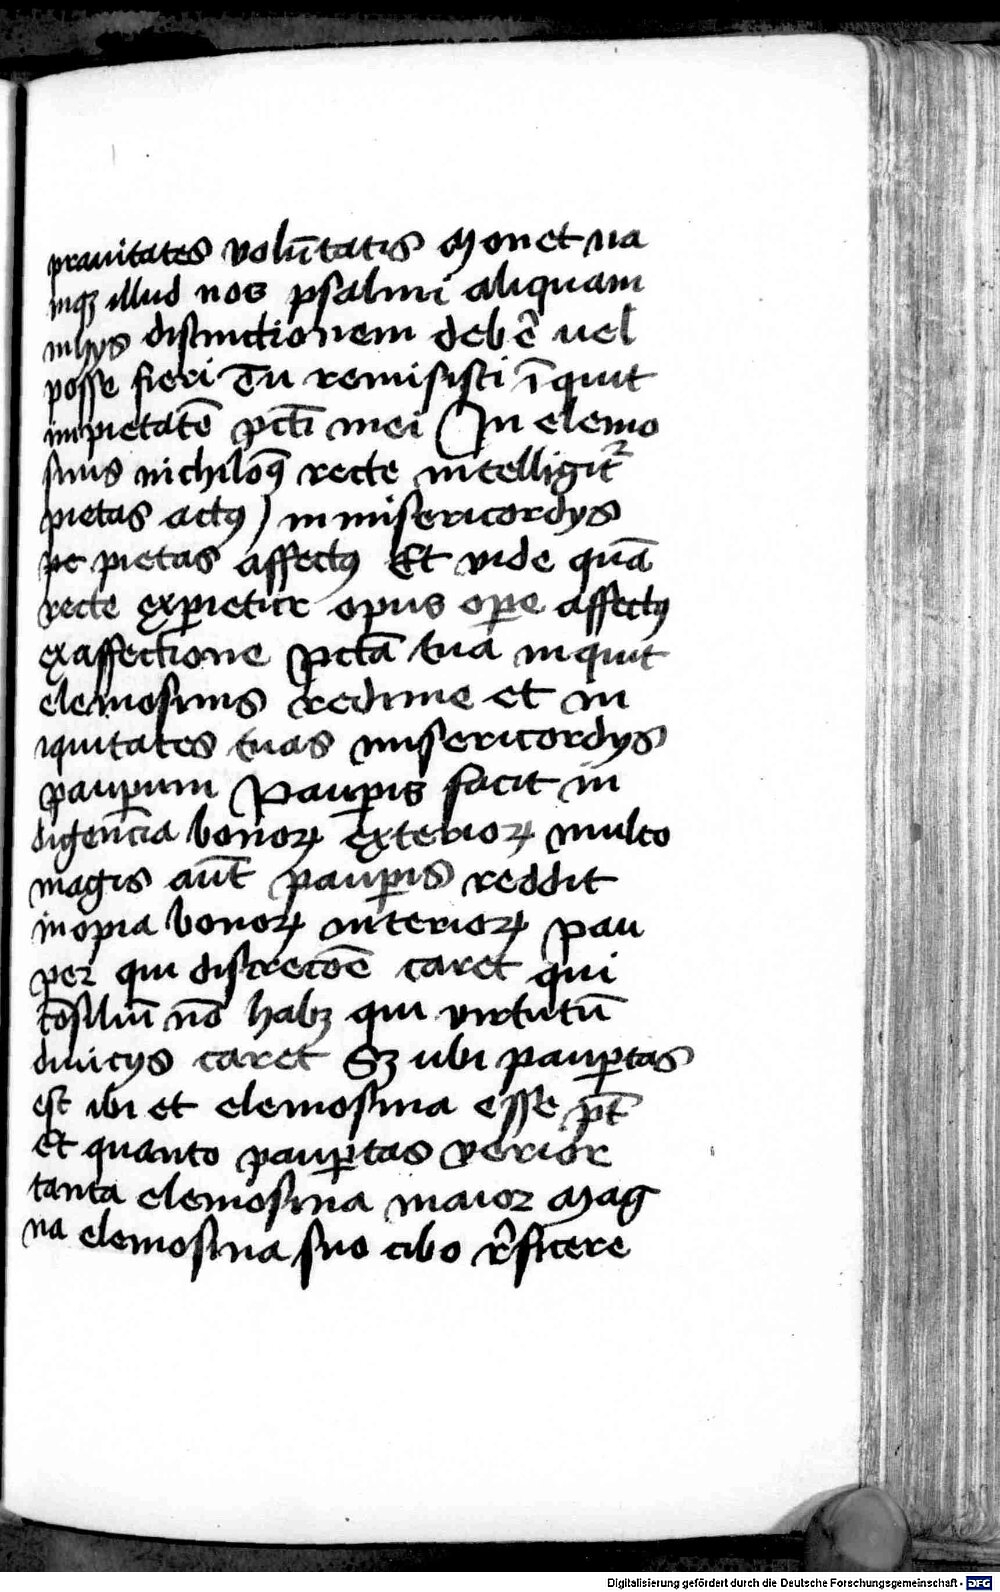 prauitates volūtatis Monet na
mqꝫ illud nos psalmi aliquam
in hys distinctionem debē uel
posse fieri Tu remisisti īquit
impietatē pcti mei In elemo
sinis nichilomꝫ recte intelligitr
pietas actꝰ in misericordys
pe pietas affectꝰ Et vide quā
recte expietur opus ope affectꝰ
ex affectione Pctā tua inquit
elemosinis redime et in
iquitates tuas misericordys
pauperum Pauperis facit in
digencia bonoꝝ exterioꝝ multo
magis aūt pauperis reddit
inopia bonoꝝ interioꝝ Pau
per qui discrecōē caret qui
cōsiliū nō habꝫ qui virtutū
diuicys caret Sꝫ ubi paupertas
est ibi et elemosina esse pt̄
et quanto paupertas verior
tanta elemosina maior Mag
na elemosina suo cibo rêficere
Digitalisierung gefördert durch die Deutsche Forschungsgemeinschaft - DFG